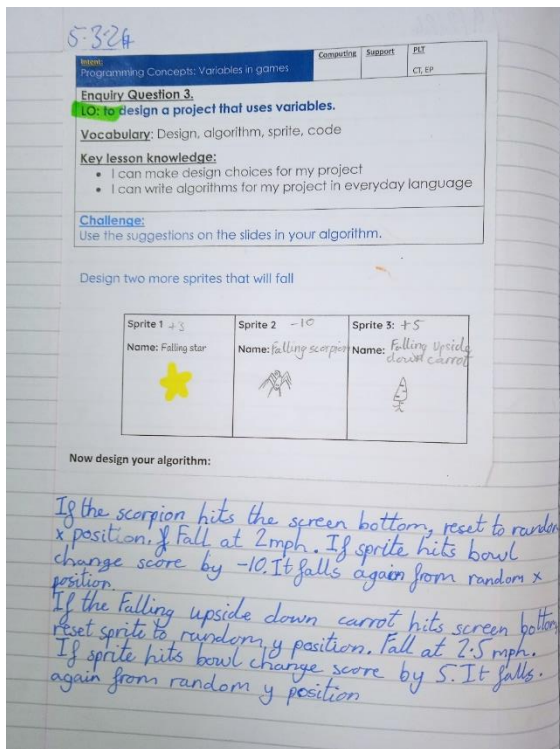 5.3.24
Intent:
Programming Concepts: Variables in games
Computing
Support
PLT
CT, EP
Enquiry Question 3.
LO: to design a project that uses variables.
Vocabulary: Design, algorithm, sprite, code
Key lesson knowledge:
• I can make design choices for my project
• I can write algorithms for my project in everyday language
Challenge:
Use the suggestions on the slides in your algorithm.
Design two more sprites that will fall
Sprite 1 +3
Name: Falling star
Sprite 2 -10
Name: falling scorpion
Sprite 3: +5
Name: Falling Upside
down carrot
Now design your algorithm:
If the scorpion hits the screen bottom, reset to random
x position. Fall at 2mph. If sprite hits bowl
change score by -10. It falls again from random x
position.
If the Falling upside down carrot hits screen bottom,
reset sprite to random y position. Fall at 2.5 mph.
If sprite hits bowl change score by 5. It falls.
again from random y position